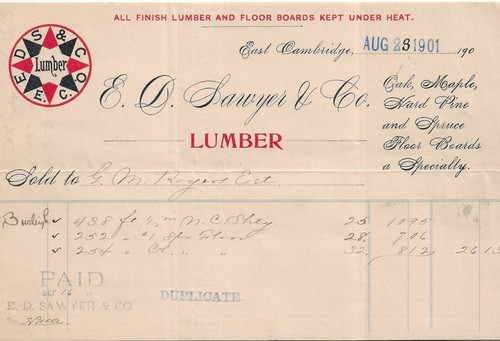 ALL FINISH LUMBER AND FLOOR BOARDS KEPT UNDER HEAT.
E D S & CO
Lumber
E. C.
East Cambridge, AUG 23 1901 190
E. D. Sawyer & Co.
LUMBER
Oak, Maple,
Hard Pine
and Spruce
Floor Boards
a Specialty.
Sold to G. M. Rogers Est
✓ 438 ft N.C. 25 1095
✓ 252 " #1 Spr Floor 28. 706
✓ 254 " 32. 812 2613
PAID
16
E. D. SAWYER & CO
DUPLICATE.